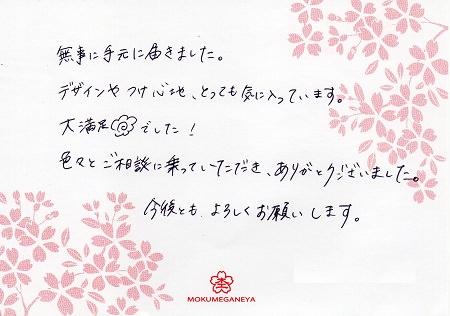 無事に手元に届きました。
デザインやつけ心地、とっても気に入っています。
大満足でした！
色々とご相談に乗っていただき、ありがとうございました。
今後とも、よろしくお願いします。
MOKUMEGANEYA